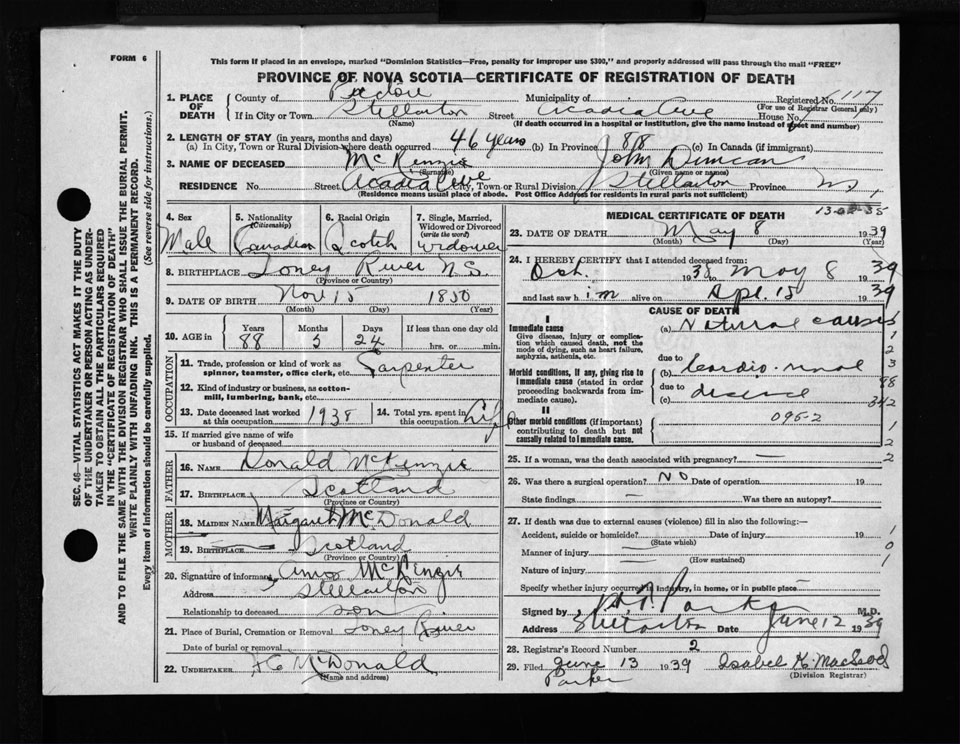 FORM 6
This form if placed in an envelope, marked "Dominion Statistics—Free, penalty for improper use $300," and properly addressed will pass through the mail "FREE"
PROVINCE OF NOVA SCOTIA—CERTIFICATE OF REGISTRATION OF DEATH
1. PLACE OF DEATH
County of Pictou Municipality of Registered No. 1117
(For use of Registrar General only)
If in City or Town Stellarton Street Acadia Ave House No.
(Name) (If death occurred in a hospital or institution, give the name instead of street and number)
2. LENGTH OF STAY (in years, months and days)
(a) In City, Town or Rural Division where death occurred 46 years (b) In Province 88 (c) In Canada (if immigrant)
3. NAME OF DECEASED McKenzie John Duncan
(Surname) (Given name or names)
RESIDENCE No. Street Acadia Ave City, Town or Rural Division Stellarton Province N.S.
(Residence means usual place of abode. Post Office Address for residents in rural parts not sufficient)
4. Sex Male
5. Nationality (Citizenship) Canadian
6. Racial Origin Scotch
7. Single, Married, Widowed or Divorced (write the word) widower
8. BIRTHPLACE Toney River N.S.
(Province or Country)
9. DATE OF BIRTH Nov 15 1850
(Month) (Day) (Year)
10. AGE in Years Months Days If less than one day old
88 5 24 hrs. or min.
OCCUPATION
11. Trade, profession or kind of work as spinner, teamster, office clerk, etc. Carpenter
12. Kind of industry or business, as cotton-mill, lumbering, bank, etc.
13. Date deceased last worked at this occupation 1938
14. Total yrs. spent in this occupation Life
15. If married give name of wife or husband of deceased
FATHER
16. NAME Donald McKenzie
17. BIRTHPLACE Scotland
(Province or Country)
MOTHER
18. MAIDEN NAME Margaret McDonald
19. BIRTHPLACE Scotland
(Province or Country)
20. Signature of informant McKenzie
Address Stellarton
Relationship to deceased son
21. Place of Burial, Cremation or Removal Toney River
Date of burial or removal
22. UNDERTAKER McDonald
(Name and address)
MEDICAL CERTIFICATE OF DEATH
23. DATE OF DEATH May 8 1939
(Month) (Day) (Year)
24. I HEREBY CERTIFY that I attended deceased from:
Oct. 1938 May 8 1939
and last saw him alive on Apl. 15 1939
CAUSE OF DEATH
I
Immediate cause (a) Natural causes
Give disease, injury or complication which caused death, not the mode of dying, such as heart failure, asphyxia, asthenia, etc.
due to
Morbid conditions, if any, giving rise to immediate cause (stated in order proceeding backwards from immediate cause) (b) Cardio-renal
due to
(c) disease
II
Other morbid conditions (if important) contributing to death but not causally related to immediate cause. 095-2
25. If a woman, was the death associated with pregnancy? —
26. Was there a surgical operation? NO Date of operation 19
State findings — Was there an autopsy?
27. If death was due to external causes (violence) fill in also the following:—
Accident, suicide or homicide? Date of injury 19
(State which)
Manner of injury —
(How sustained)
Nature of injury —
Specify whether injury occurred in industry, in home, or in public place —
Signed by Parker M.D.
Address Stellarton Date June 12 1939
28. Registrar's Record Number 2
29. Filed June 13 1939 Isabel K. MacLeod
Parker (Division Registrar)
SEC. 46—VITAL STATISTICS ACT MAKES IT THE DUTY
OF THE UNDERTAKER OR PERSON ACTING AS UNDER-
TAKER TO OBTAIN ALL THE PARTICULARS REQUIRED
IN THE "CERTIFICATE OF REGISTRATION OF DEATH"
AND TO FILE THE SAME WITH THE DIVISION REGISTRAR WHO SHALL ISSUE THE BURIAL PERMIT.
WRITE PLAINLY WITH UNFADING INK. THIS IS A PERMANENT RECORD.
Every item of information should be carefully supplied. (See reverse side for instructions.)